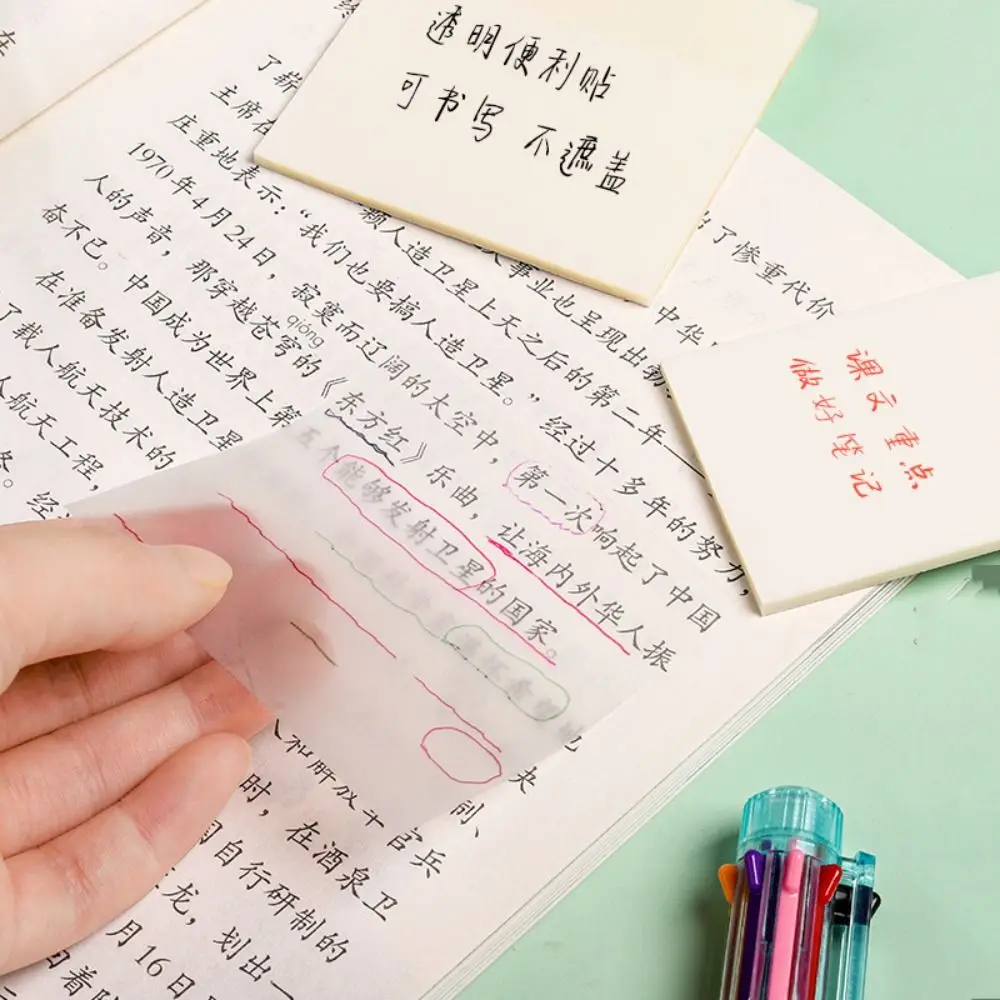 透明便利贴
可书写 不遮盖
课文重点
做好笔记
在
终
了惨重代价
了崭
事业也呈现出勃
中华
主席在
颗人造卫星上天之后的第二年——
庄重地表示：“我们也要搞人造卫星。”经过十多年的努力，
qióng
1970年4月24日，寂寞而辽阔的太空中，第一次响起了中国
人的声音，那穿越苍穹的《东方红》乐曲，让海内外华人振
奋不已。中国成为世界上第五个能够发射卫星的国家。
在准备发射人造卫星
了载人航天技术的
人航天工程，
经
官兵
时，在酒泉卫
国自行研制的
龙，划出一
月16日